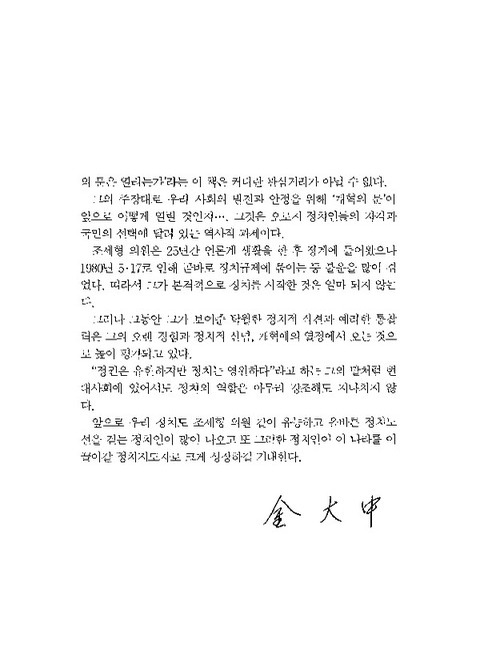 의 문은 열리는가'라는 이 책은 커다란 관심거리가 아닐 수 없다.
그의 주장대로 우리 사회의 발전과 안정을 위해 '개혁의 문'이
앞으로 어떻게 열릴 것인지…. 그것은 오로지 정치인들의 자각과
국민의 선택에 달려 있는 역사적 과제이다.
조세형 의원은 25년간 언론계 생활을 한 후 정계에 들어왔으나
1980년 5·17로 인해 곧바로 정치규제에 묶이는 등 불운을 많이 겪
었다. 따라서 그가 본격적으로 정치를 시작한 것은 얼마 되지 않는
다.
그러나 그동안 그가 보여준 탁월한 정치적 식견과 예리한 통찰
력은 그의 오랜 경험과 정치적 신념, 개혁에의 열정에서 오는 것으
로 높이 평가되고 있다.
“정권은 유한하지만 정치는 영원하다”라고 하는 그의 말처럼 현
대사회에 있어서도 정치의 역할은 아무리 강조해도 지나치지 않
다.
앞으로 우리 정치도 조세형 의원 같이 유능하고 올바른 정치노
선을 걷는 정치인이 많이 나오고 또 그러한 정치인이 이 나라를 이
끌어갈 정치지도자로 크게 성장하길 기대한다.
金大中